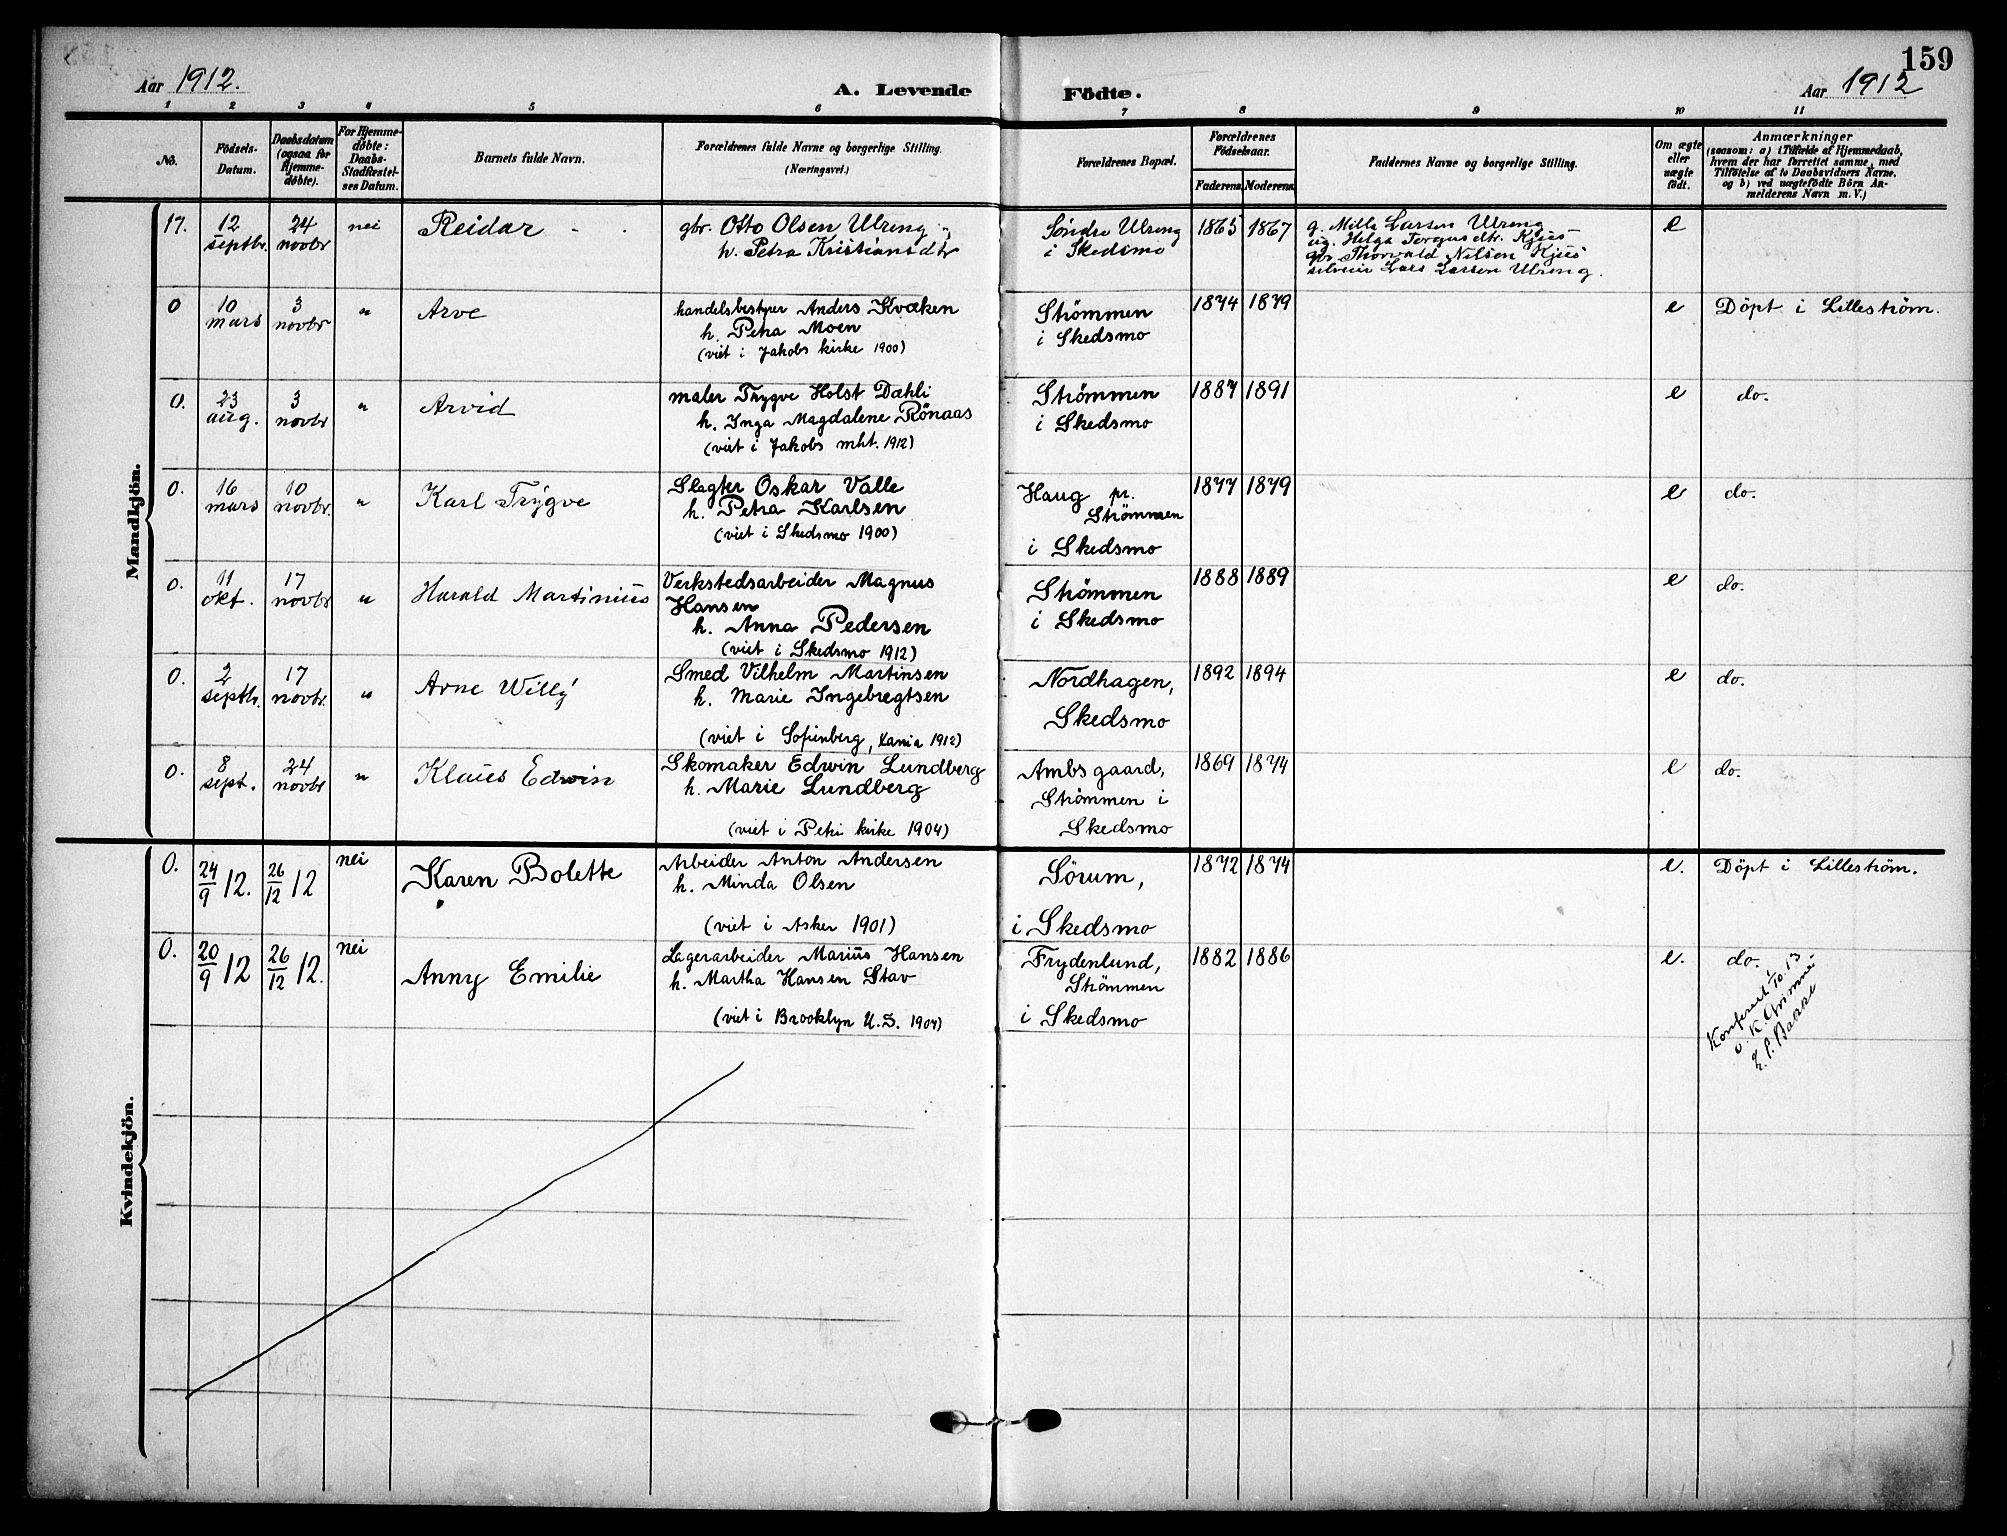 159
Aar 1912.
A. Levende Födte.
Aar 1912
1 2 3 4 5 6 7 8 9 10 11
No.
Födsels-
Datum.
Daabsdatum
(ogsaa for
Hjemme-
döbte).
For Hjemme-
döbte:
Daabs-
Stadfæstel-
ses Datum.
Barnets fulde Navn.
Forældrenes fulde Navne og borgerlige Stilling.
(Næringsvei.)
Forældrenes Bopæl.
Forældrenes
Födselsaar.
Faderens. Moderens.
Faddernes Navne og borgerlige Stilling.
Om ægte
eller
uægte
födt.
Anmærkninger
(saasom: a) i Tilfælde af Hjemmedaab,
hvem der har forrettet samme, med
Tilföielse af to Daabsvidners Navne.
og b) ved uægtefödte Börn An-
melderens Navn m. V.)
Mandkjön.
17. 12 septbr. 24 novbr nei Reidar
gbr. Otto Olsen Ulreng
h. Petra Kristiansdtr
Søndre Ulreng
i Skedsmo
1865 1867
g. Milla Larsen Ulreng
ug. Helga Torgusdtr. Kjus
gbr. Thorvald Nilsen Kjus
Lars Larsen Ulreng.
e
0 10 mars 3 novbr " Arve
handelsbestyrer Anders Kvæken
h. Petra Moen
(viet i Jakobs kirke 1900)
Strømmen
i Skedsmo
1874 1879
e
Döpt i Lilleström.
0. 23 aug. 3 novbr " Arvid
maler Trygve Holst Dæhli
h. Inga Magdalene Rönaas
(viet i Jakobs mht. 1912)
Strømmen
i Skedsmo
1887 1891
e
do.
0. 16 mars 10 novbr. " Karl Trygve
Slagter Oskar Valle
h. Petra Karlsen
(viet i Skedsmo 1900)
Haug pr.
Strømmen
i Skedsmo
1877 1879
e
do.
0. 11 okt. 17 novbr " Harald Martinius
Verkstedsarbeider Magnus
Hansen
h. Anna Pedersen
(viet i Skedsmo 1912)
Strømmen
i Skedsmo
1888 1889
e
do.
0. 2 septbr. 17 novbr. " Arne Willy
Smed Vilhelm Martinsen
h. Marie Ingebregtsen
(viet i Sofienberg, Xania 1912)
Nordhagen,
Skedsmo
1892 1894
e
do.
0. 8 sept. 24 novbr " Klaus Edwin
Skomaker Edwin Lundberg
h. Marie Lundberg
(viet i Petri kirke 1904)
Ambsgaard,
Strømmen i
Skedsmo
1869 1874
e
do.
Kvindekjön.
0. 24/9 12. 26/12 12 nei Karen Bolette
Arbeider Anton Andersen
h. Minda Olsen
(viet i Asker 1901)
Sörum,
i Skedsmo
1872 1874
e.
Döpt i Lilleström.
0. 20/9 12 26/12 12. nei Anny Emilie
Lagerarbeider Marius Hansen
h. Martha Hansen Stav
(viet i Brooklyn U.S. 1904)
Frydenlund,
Strømmen
i Skedsmo
1882 1886
e.
do.
Konferert 1/10.13